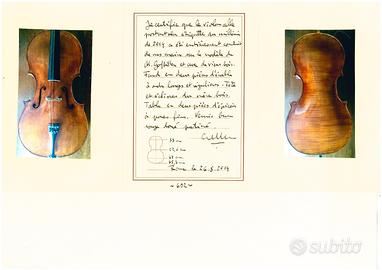 Je certifie que le violoncelle
portant mon étiquette du millésime
de 2019 a été entièrement construit
de mes mains sur le modèle de
M. Goffriller et avec de vieux bois.
Fonds en deux pièces d'érable
à ondes larges et régulières. Tête
et éclisses du même bois.
Table en deux pièces d'épicéa
à grain fin. Vernis brun
rouge doré patiné.
cm
cm
cm
cm
le 26.8.2019
~ 602 ~
subito